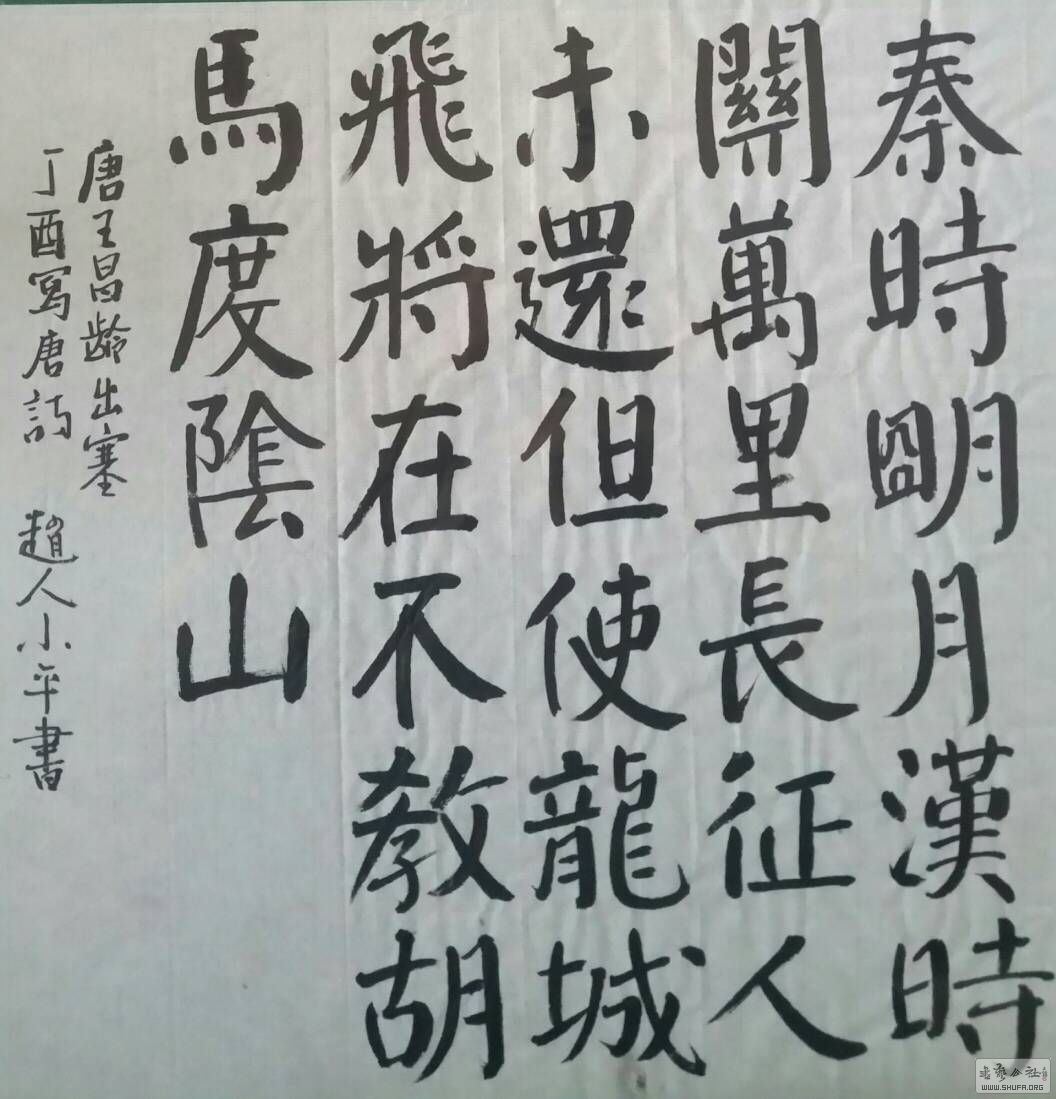 秦時明月漢時
關萬里長征人
未還但使龍城
飛將在不教胡
馬度陰山
唐王昌齡出塞
丁酉寫唐詩 趙人小平書
WWW.SHUFA.ORG